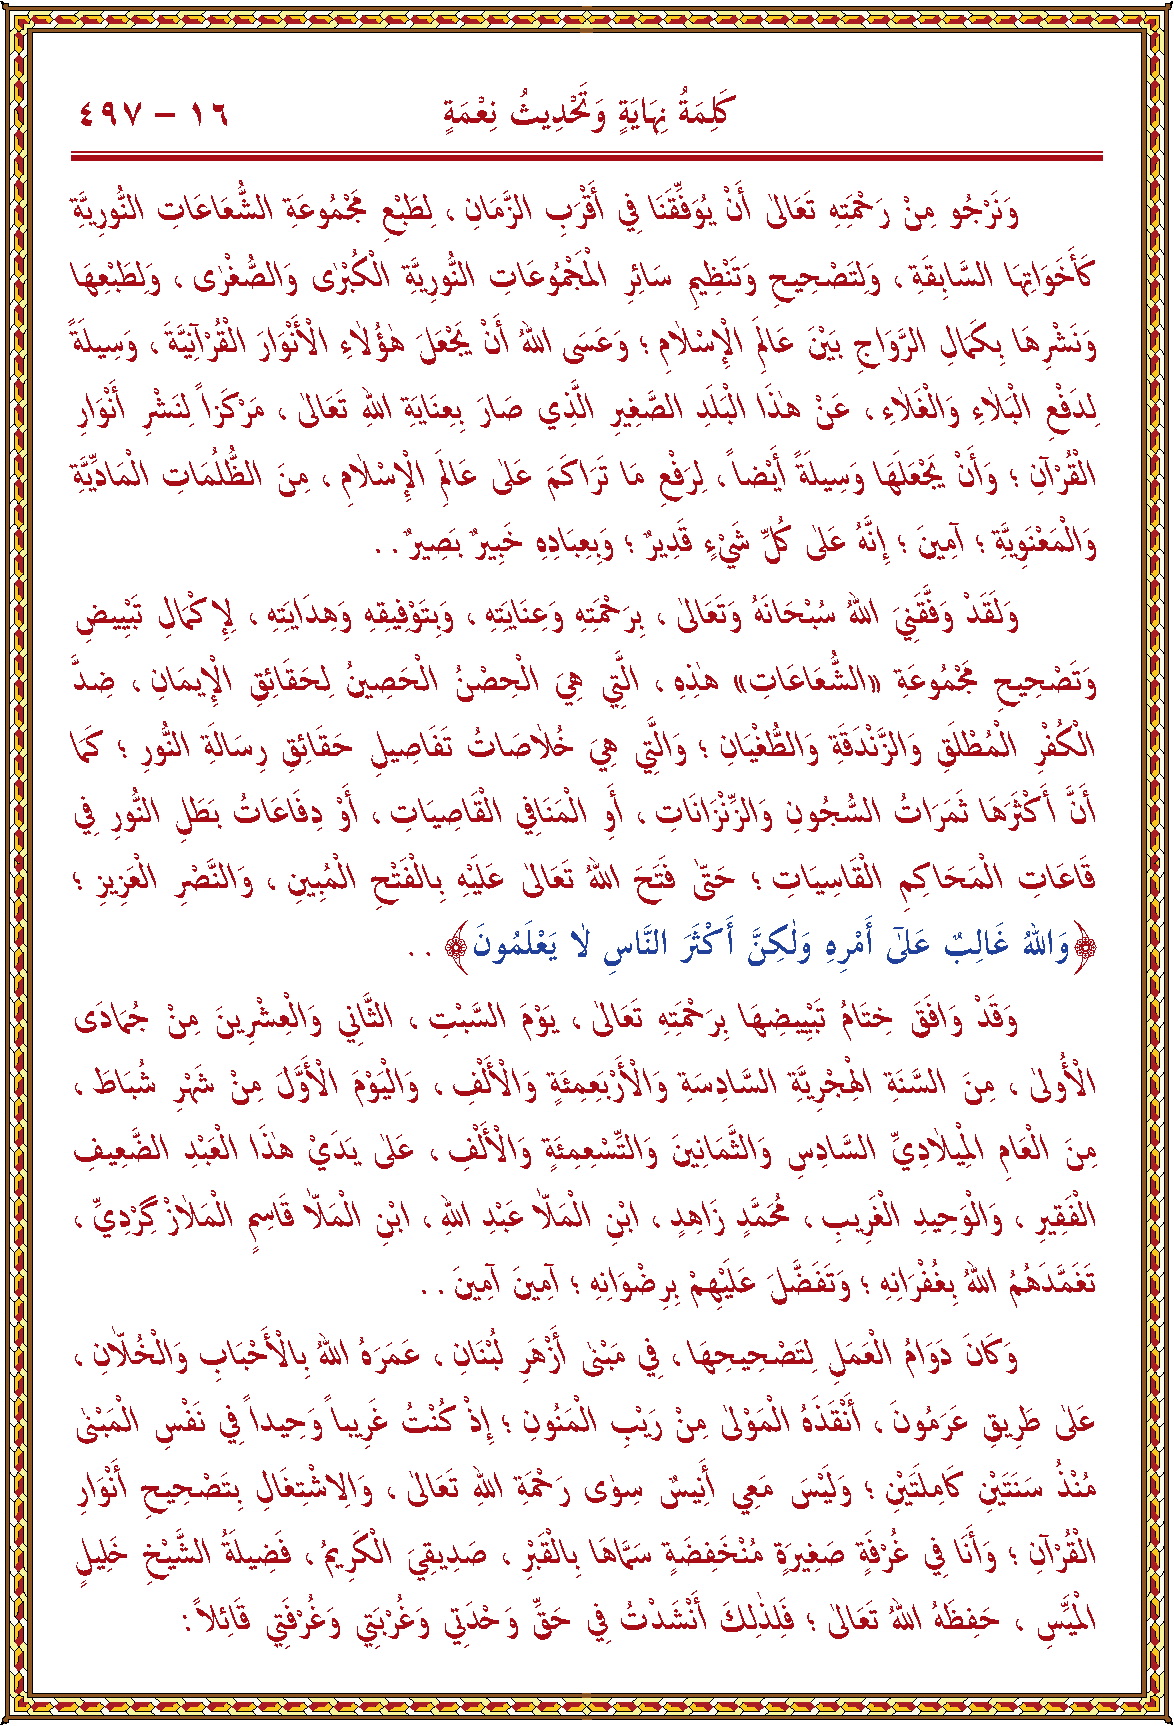 كَلِمَةُ نِهَايَةٍ وَتَحْدِيثُ نِعْمَةٍ
١٦ – ٤٩٧
وَنَرْجُو مِنْ رَحْمَتِهِ تَعَالٰى أَنْ يُوَفِّقَنَا فِي أَقْرَبِ الزَّمَانِ ، لِطَبْعِ مَجْمُوعَةِ الشُّعَاعَاتِ النُّورِيَّةِ
كَأَخَوَاتِهَا السَّابِقَةِ ، وَلِتَصْحِيحِ وَتَنْظِيمِ سَائِرِ الْمَجْمُوعَاتِ النُّورِيَّةِ الْكُبْرٰى وَالصُّغْرٰى ، وَلِطَبْعِهَا
وَنَشْرِهَا بِكَمَالِ الرَّوَاجِ بَيْنَ عَالَمِ الْإِسْلَامِ ؛ وَعَسَى اللهُ أَنْ يَجْعَلَ هٰؤُلَاءِ الْأَنْوَارَ الْقُرْآنِيَّةَ ، وَسِيلَةً
لِدَفْعِ الْبَلَاءِ وَالْغَلَاءِ ، عَنْ هٰذَا الْبَلَدِ الصَّغِيرِ الَّذِي صَارَ بِعِنَايَةِ اللهِ تَعَالٰى ، مَرْكَزاً لِنَشْرِ أَنْوَارِ
الْقُرْآنِ ؛ وَأَنْ يَجْعَلَهَا وَسِيلَةً أَيْضاً ، لِرَفْعِ مَا تَرَاكَمَ عَلٰى عَالَمِ الْإِسْلَامِ ، مِنَ الظُّلُمَاتِ الْمَادِّيَّةِ
وَالْمَعْنَوِيَّةِ ؛ آمِينَ ؛ إِنَّهُ عَلٰى كُلِّ شَيْءٍ قَدِيرٌ ؛ وَبِعِبَادِهِ خَبِيرٌ بَصِيرٌ . .
وَلَقَدْ وَفَّقَنِيَ اللهُ سُبْحَانَهُ وَتَعَالٰى ، بِرَحْمَتِهِ وَعِنَايَتِهِ ، وَبِتَوْفِيقِهِ وَهِدَايَتِهِ ، لِإِكْمَالِ تَبْيِيضِ
وَتَصْحِيحِ مَجْمُوعَةِ «الشُّعَاعَاتِ» هٰذِهِ ، الَّتِي هِيَ الْحِصْنُ الْحَصِينُ لِحَقَائِقِ الْإِيمَانِ ، ضِدَّ
الْكُفْرِ الْمُطْلَقِ وَالزَّنْدَقَةِ وَالطُّغْيَانِ ؛ وَالَّتِي هِيَ خُلَاصَاتُ تَفَاصِيلِ حَقَائِقِ رِسَالَةِ النُّورِ ؛ كَمَا
أَنَّ أَكْثَرَهَا ثَمَرَاتُ السُّجُونِ وَالزِّنْزَانَاتِ ، أَوِ الْمَنَافِي الْقَاصِيَاتِ ، أَوْ دِفَاعَاتُ بَطَلِ النُّورِ فِي
قَاعَاتِ الْمَحَاكِمِ الْقَاسِيَاتِ ؛ حَتّٰى فَتَحَ اللهُ تَعَالٰى عَلَيْهِ بِالْفَتْحِ الْمُبِينِ ، وَالنَّصْرِ الْعَزِيزِ ؛
﴿وَاللهُ غَالِبٌ عَلٰٓى أَمْرِهِ وَلٰكِنَّ أَكْثَرَ النَّاسِ لَا يَعْلَمُونَ﴾ . .
وَقَدْ وَافَقَ خِتَامُ تَبْيِيضِهَا بِرَحْمَتِهِ تَعَالٰى ، يَوْمَ السَّبْتِ ، الثَّانِي وَالْعِشْرِينَ مِنْ جُمَادَى
الْأُولٰى ، مِنَ السَّنَةِ الْهِجْرِيَّةِ السَّادِسَةِ وَالْأَرْبَعِمِئَةٍ وَالْأَلْفِ ، وَالْيَوْمَ الْأَوَّلَ مِنْ شَهْرِ شُبَاطَ ،
مِنَ الْعَامِ الْمِيلَادِيِّ السَّادِسِ وَالثَّمَانِينَ وَالتِّسْعِمِئَةٍ وَالْأَلْفِ ، عَلٰى يَدَيْ هٰذَا الْعَبْدِ الضَّعِيفِ
الْفَقِيرِ ، وَالْوَحِيدِ الْغَرِيبِ ، مُحَمَّدٍ زَاهِدٍ ، ابْنِ الْمَلَّا عَبْدِ اللهِ ، ابْنِ الْمَلَّا قَاسِمٍ الْمَلَازْگِرْدِيِّ ،
تَغَمَّدَهُمُ اللهُ بِغُفْرَانِهِ ؛ وَتَفَضَّلَ عَلَيْهِمْ بِرِضْوَانِهِ ؛ آمِينَ آمِينَ . .
وَكَانَ دَوَامُ الْعَمَلِ لِتَصْحِيحِهَا ، فِي مَبْنٰى أَزْهَرِ لُبْنَانِ ، عَمَرَهُ اللهُ بِالْأَحْبَابِ وَالْخُلَّانِ ،
عَلٰى طَرِيقِ عَرَمُونَ ، أَنْقَذَهُ الْمَوْلٰى مِنْ رَيْبِ الْمَنُونِ ؛ إِذْ كُنْتُ غَرِيباً وَحِيداً فِي نَفْسِ الْمَبْنٰى
مُنْذُ سَنَتَيْنِ كَامِلَتَيْنِ ؛ وَلَيْسَ مَعِي أَنِيسٌ سِوٰى رَحْمَةِ اللهِ تَعَالٰى ، وَالِاشْتِغَالِ بِتَصْحِيحِ أَنْوَارِ
الْقُرْآنِ ؛ وَأَنَا فِي غُرْفَةٍ صَغِيرَةٍ مُنْخَفِضَةٍ سَمَّاهَا بِالْقَبْرِ ، صَدِيقِيَ الْكَرِيمُ ، فَضِيلَةُ الشَّيْخِ خَلِيلٍ
الْمَيْسِ ، حَفِظَهُ اللهُ تَعَالٰى ؛ فَلِذٰلِكَ أَنْشَدْتُ فِي حَقِّ وَحْدَتِي وَغُرْبَتِي وَغُرْفَتِي قَائِلاً :